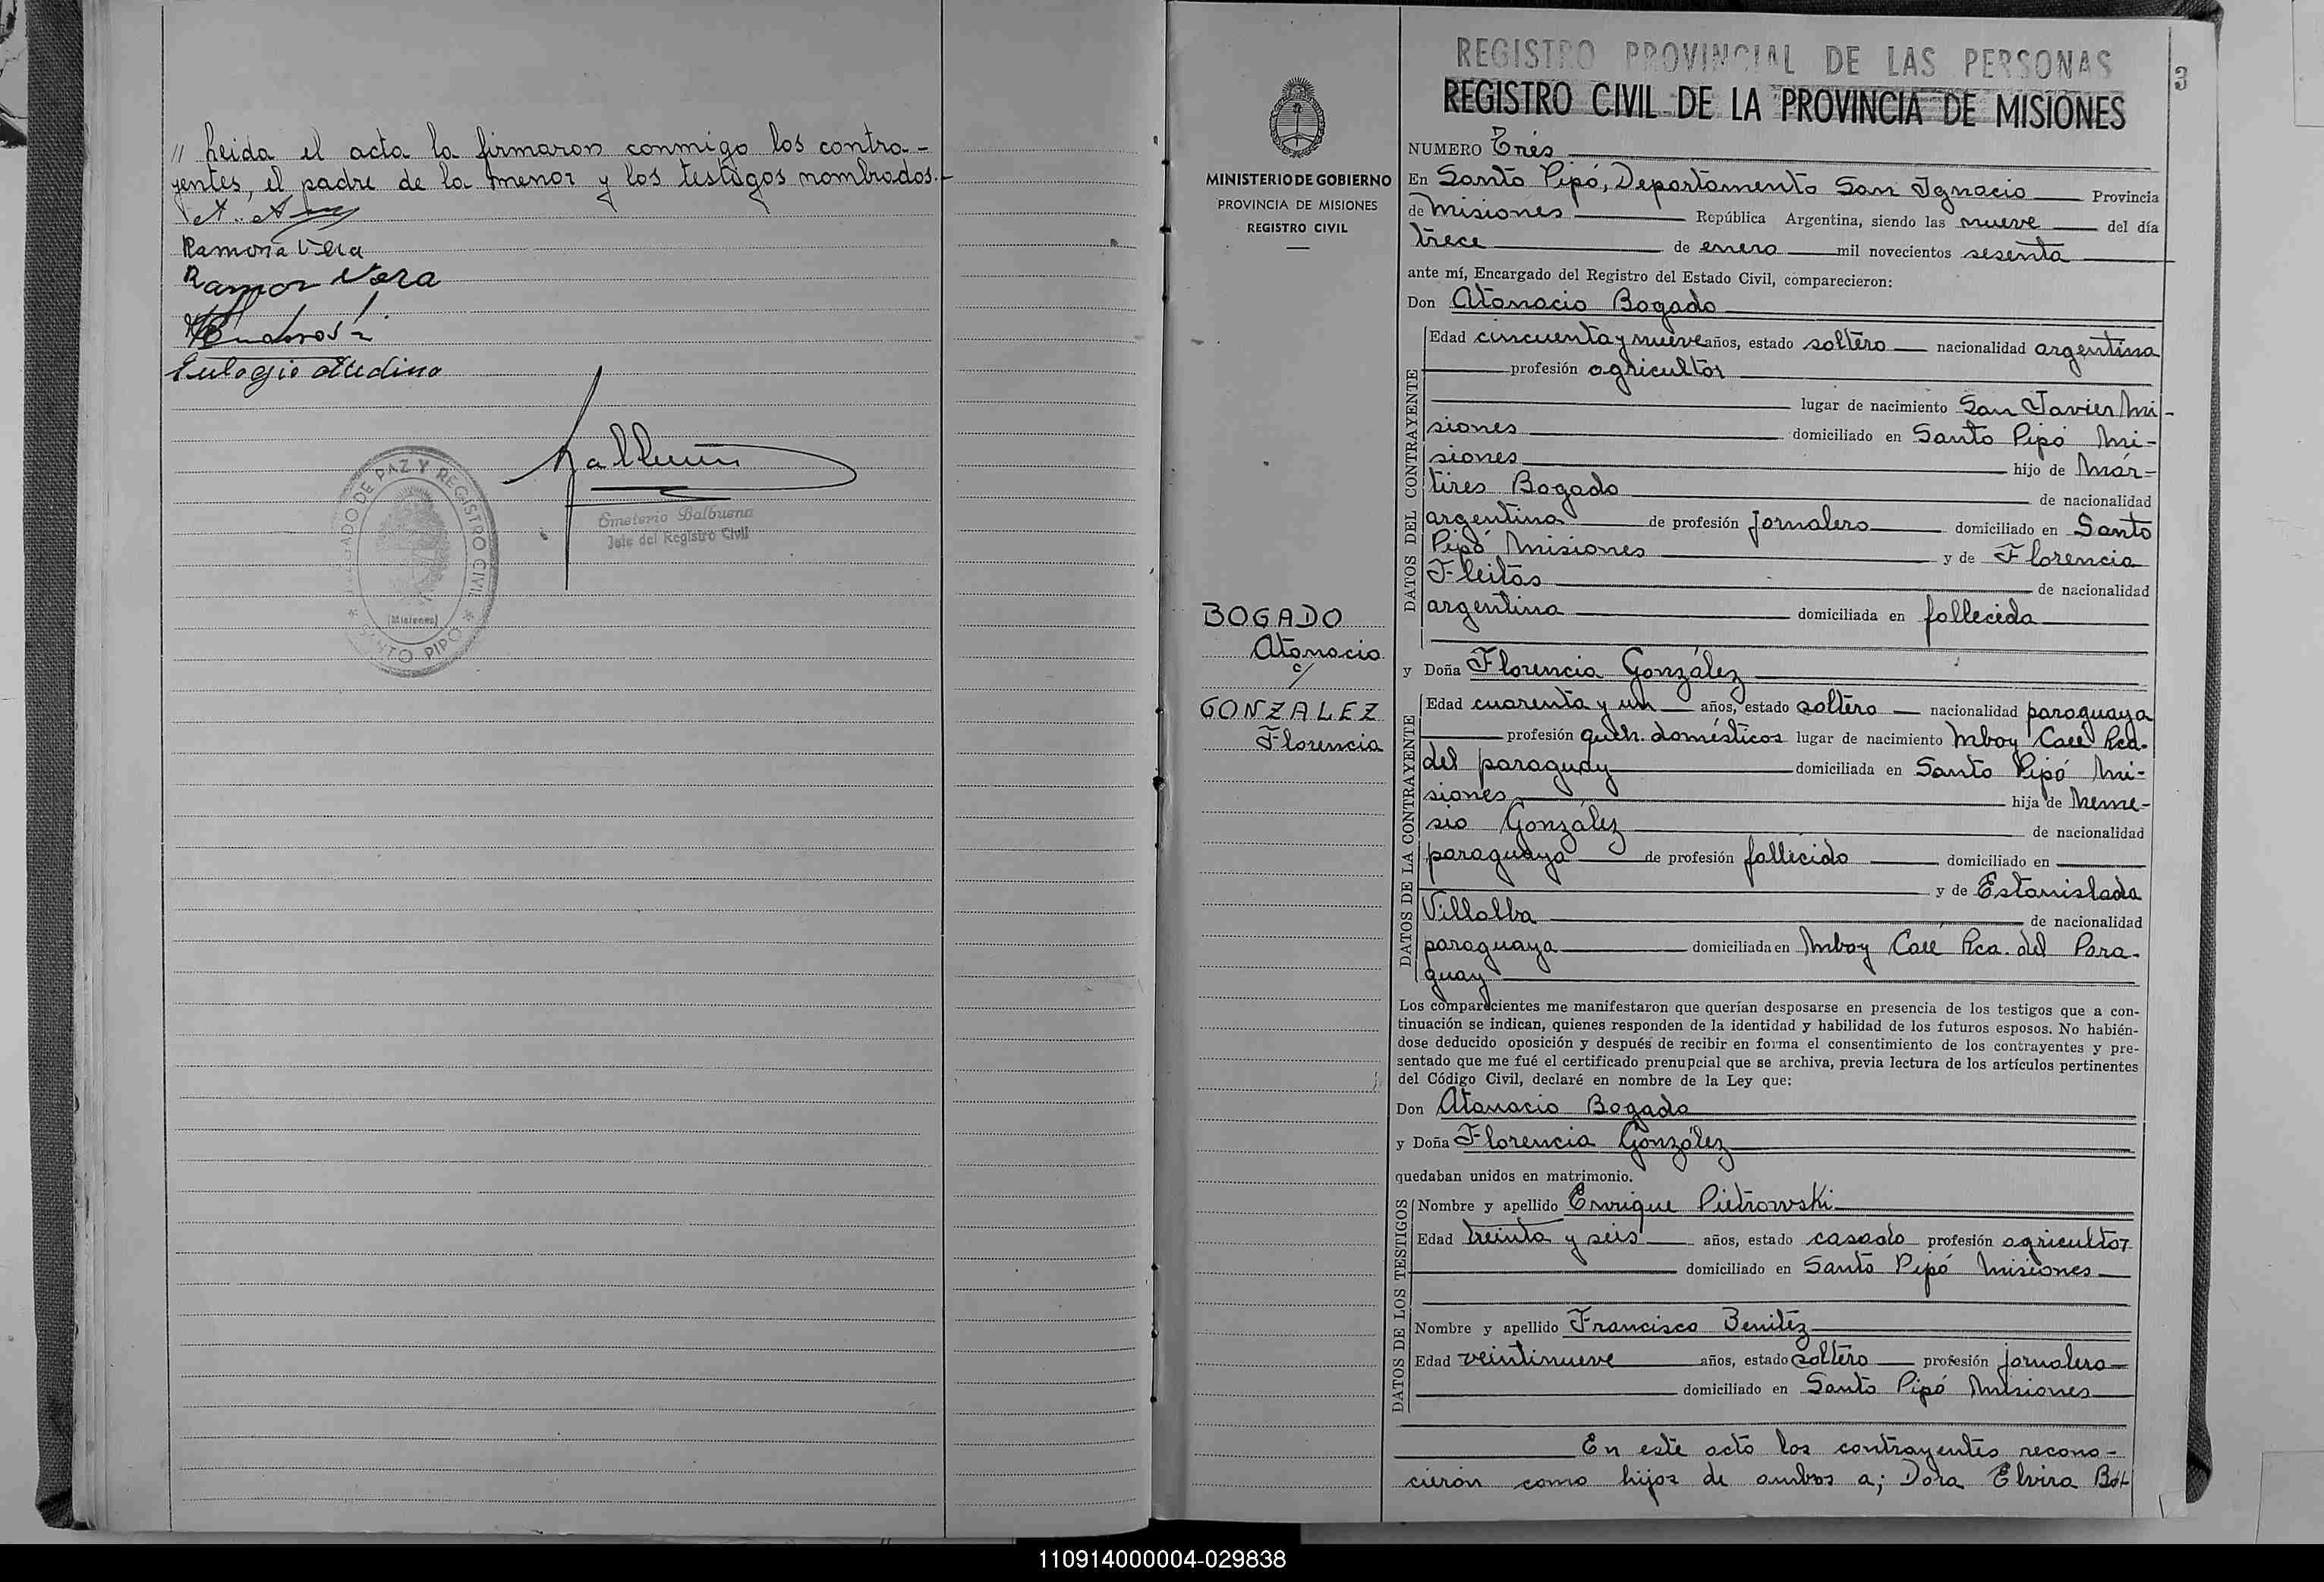 // Leida el acta la firmaron conmigo los contra-
yentes, el padre de la menor y los testigos nombrados.-
Ramona Vera
Ramon Vera
Eulogio Medina
Emeterio Balbuena
Jefe del Registro Civil
JUZGADO DE PAZ Y REGISTRO CIVIL
(Misiones)
* SANTO PIPO *
MINISTERIO DE GOBIERNO
PROVINCIA DE MISIONES
REGISTRO CIVIL
BOGADO
Atanacio
c/
GONZALEZ
Florencia
REGISTRO PROVINCIAL DE LAS PERSONAS
3
REGISTRO CIVIL DE LA PROVINCIA DE MISIONES
NUMERO Tres
En Santo Pipó, Departamento San Ignacio Provincia
de Misiones República Argentina, siendo las nueve del día
trece de enero mil novecientos sesenta
ante mí, Encargado del Registro del Estado Civil, comparecieron:
Don Atanacio Bogado
DATOS DEL CONTRAYENTE
Edad cincuenta y nueve años, estado soltero nacionalidad argentina
profesión agricultor
lugar de nacimiento San Javier Mi-
siones domiciliado en Santo Pipó Mi-
siones hijo de Már-
tires Bogado de nacionalidad
argentina de profesión jornalero domiciliado en Santo
Pipó Misiones y de Florencia
Fleitas de nacionalidad
argentina domiciliada en fallecida
y Doña Florencia González
DATOS DE LA CONTRAYENTE
Edad cuarenta y un años, estado soltera nacionalidad paraguaya
profesión queh. domésticos lugar de nacimiento Mboy Caé Rca.
del paraguay domiciliada en Santo Pipó Mi-
siones hija de Neme-
sio González de nacionalidad
paraguaya de profesión fallecido domiciliado en
y de Estanislada
Villalba de nacionalidad
paraguaya domiciliada en Mboy Caé Rca. del Para-
guay
Los comparecientes me manifestaron que querían desposarse en presencia de los testigos que a con-
tinuación se indican, quienes responden de la identidad y habilidad de los futuros esposos. No habién-
dose deducido oposición y después de recibir en forma el consentimiento de los contrayentes y pre-
sentado que me fué el certificado prenupcial que se archiva, previa lectura de los artículos pertinentes
del Código Civil, declaré en nombre de la Ley que:
Don Atanacio Bogado
y Doña Florencia González
quedaban unidos en matrimonio.
DATOS DE LOS TESTIGOS
Nombre y apellido Enrique Pietrowski
Edad treinta y seis años, estado casado profesión agricultor
domiciliado en Santo Pipó Misiones
Nombre y apellido Francisco Benitez
Edad veintinueve años, estado soltero profesión jornalero
domiciliado en Santo Pipó Misiones
En este acto los contrayentes recono-
cieron como hijos de ambos a; Dora Elvira Bo-
110914000004-029838